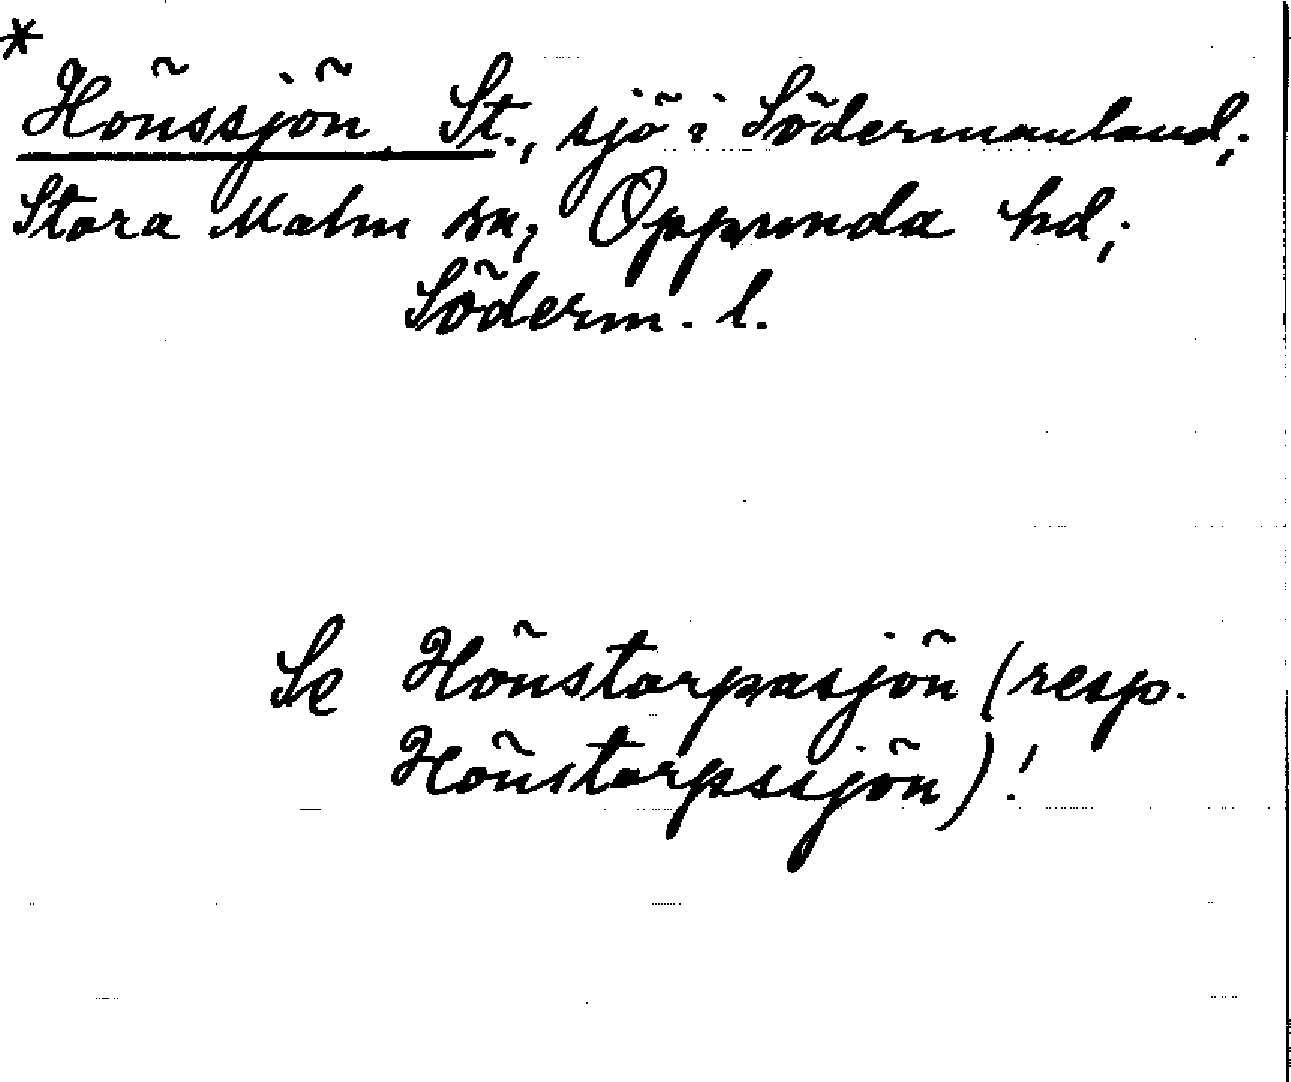 *
Hönssjön St., sjö i Södermanland;
Stora Malm sn, Oppunda hd,
Söderm. l.
Se Hönstorpasjön (resp.
Hönstorpssjön)!